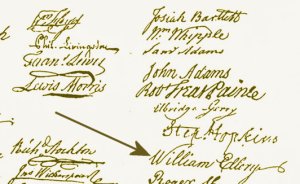 Phil. Livingston
Lewis Morris
Richd Stockton
Jno Witherspoon
Josiah Bartlett
Wm Whipple
Saml Adams
John Adams
Robt Treat Paine
Elbridge Gerry
Step. Hopkins
William Ellery
Roger